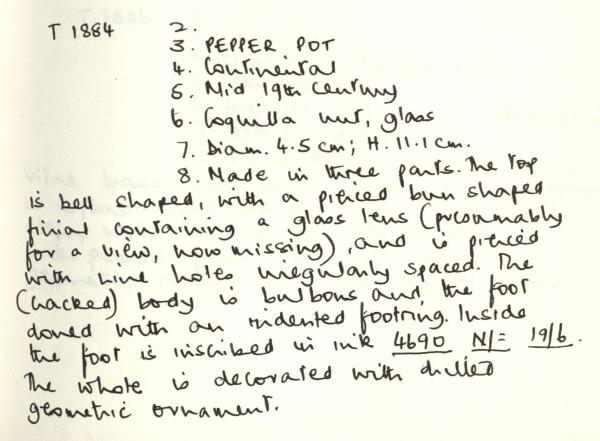 T 1884 2.
3. PEPPER POT
4. Continental
5. Mid 19th Century
6. Coquilla nut, glass
7. Diam. 4.5 cm; H. 11.1 cm.
8. Made in three parts. The top
is bell shaped, with a pierced bun shaped
finial containing a glass lens (presumably
for a view, now missing), and is pierced
with nine holes irregularly spaced. The
(cracked) body is bulbous and the foot
domed with an indented footring. Inside
the foot is inscribed in ink 4690 N/= 19/6.
The whole is decorated with drilled
geometric ornament.